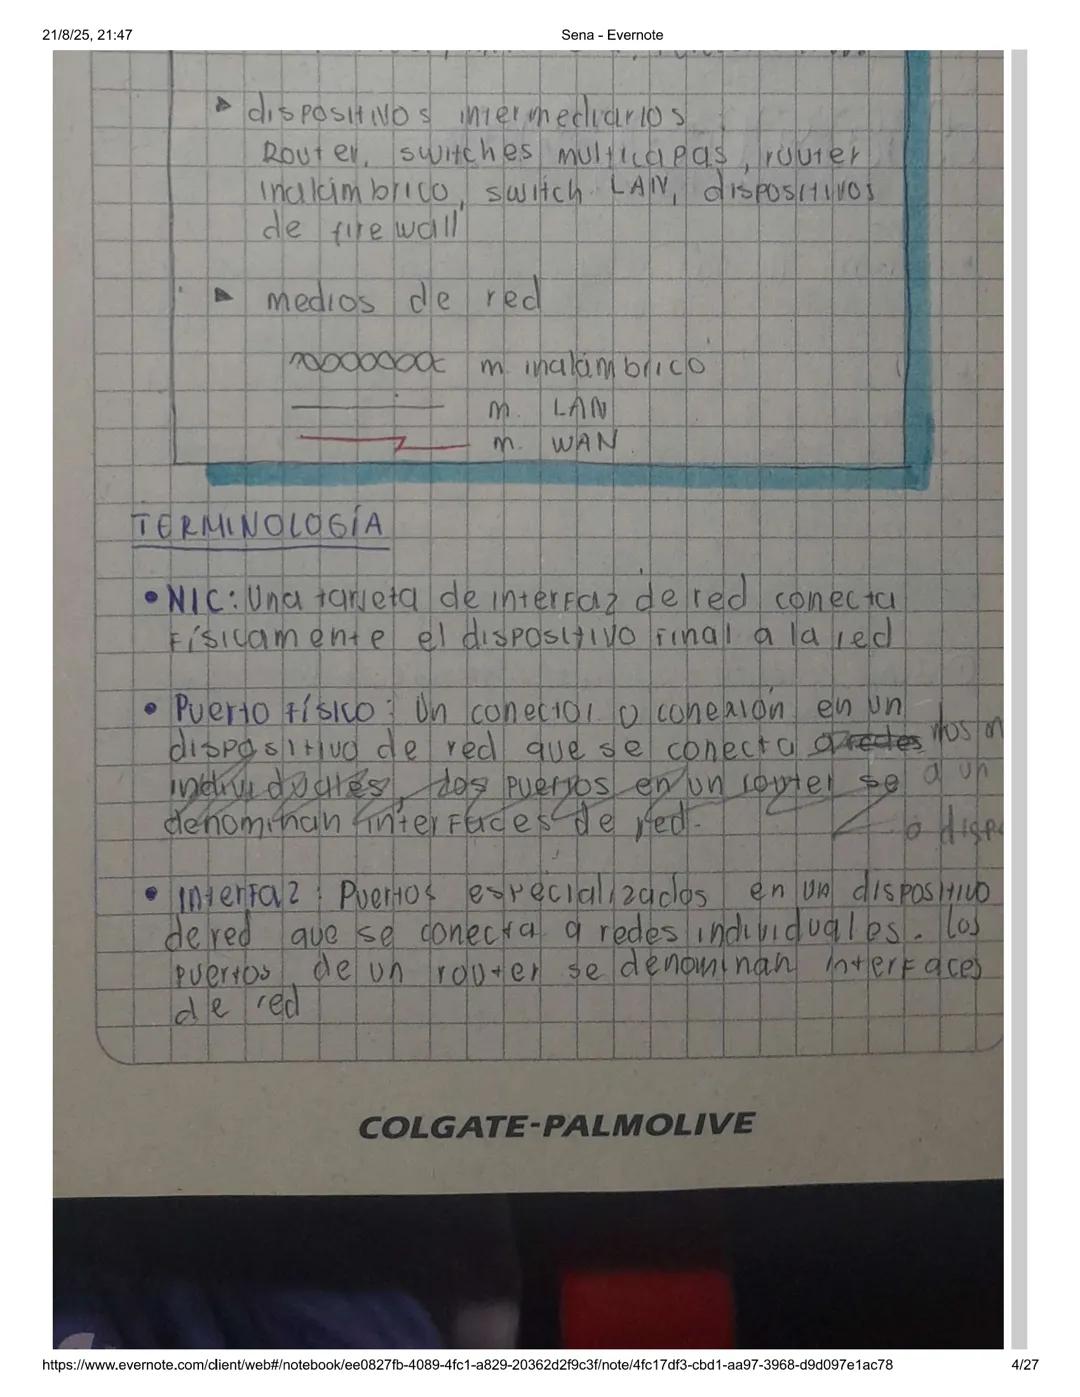 21/8/25, 21:47
Sena - Evernote
dispositivos intermediarios
Router, switches multicapas, router
inalámbrico, switch LAN, dispositivos
de firewall
medios de red
m. inalámbrico
m. LAN
m. WAN
TERMINOLOGÍA
• NIC: Una tarjeta de interfaz de red conecta
físicamente el dispositivo final a la red
• Puerto físico: Un conector o conexión en un
dispositivo de red que se conecta a redes
individuales, los puertos en un router se a un
denominan interfaces de red.
• Interfaz: Puertos especializados en un dispositivo
de red que se conecta a redes individuales. Los
puertos de un router se denominan interfaces
de red
COLGATE-PALMOLIVE
https://www.evernote.com/client/web#/notebook/ee0827fb-4089-4fc1-a829-20362d2f9c3f/note/4fc17df3-cbd1-aa97-3968-d9d097e1ac78
4/27